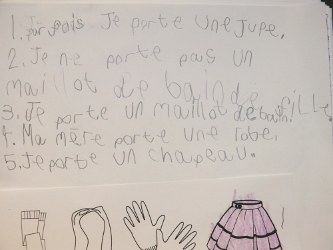 1. parfois Je porte une jupe.
2. Je ne porte pas un
maillot de bain de fille
3. Je porte un maillot de bain.
4. Ma mère porte une robe.
5. Je porte un chapeau.